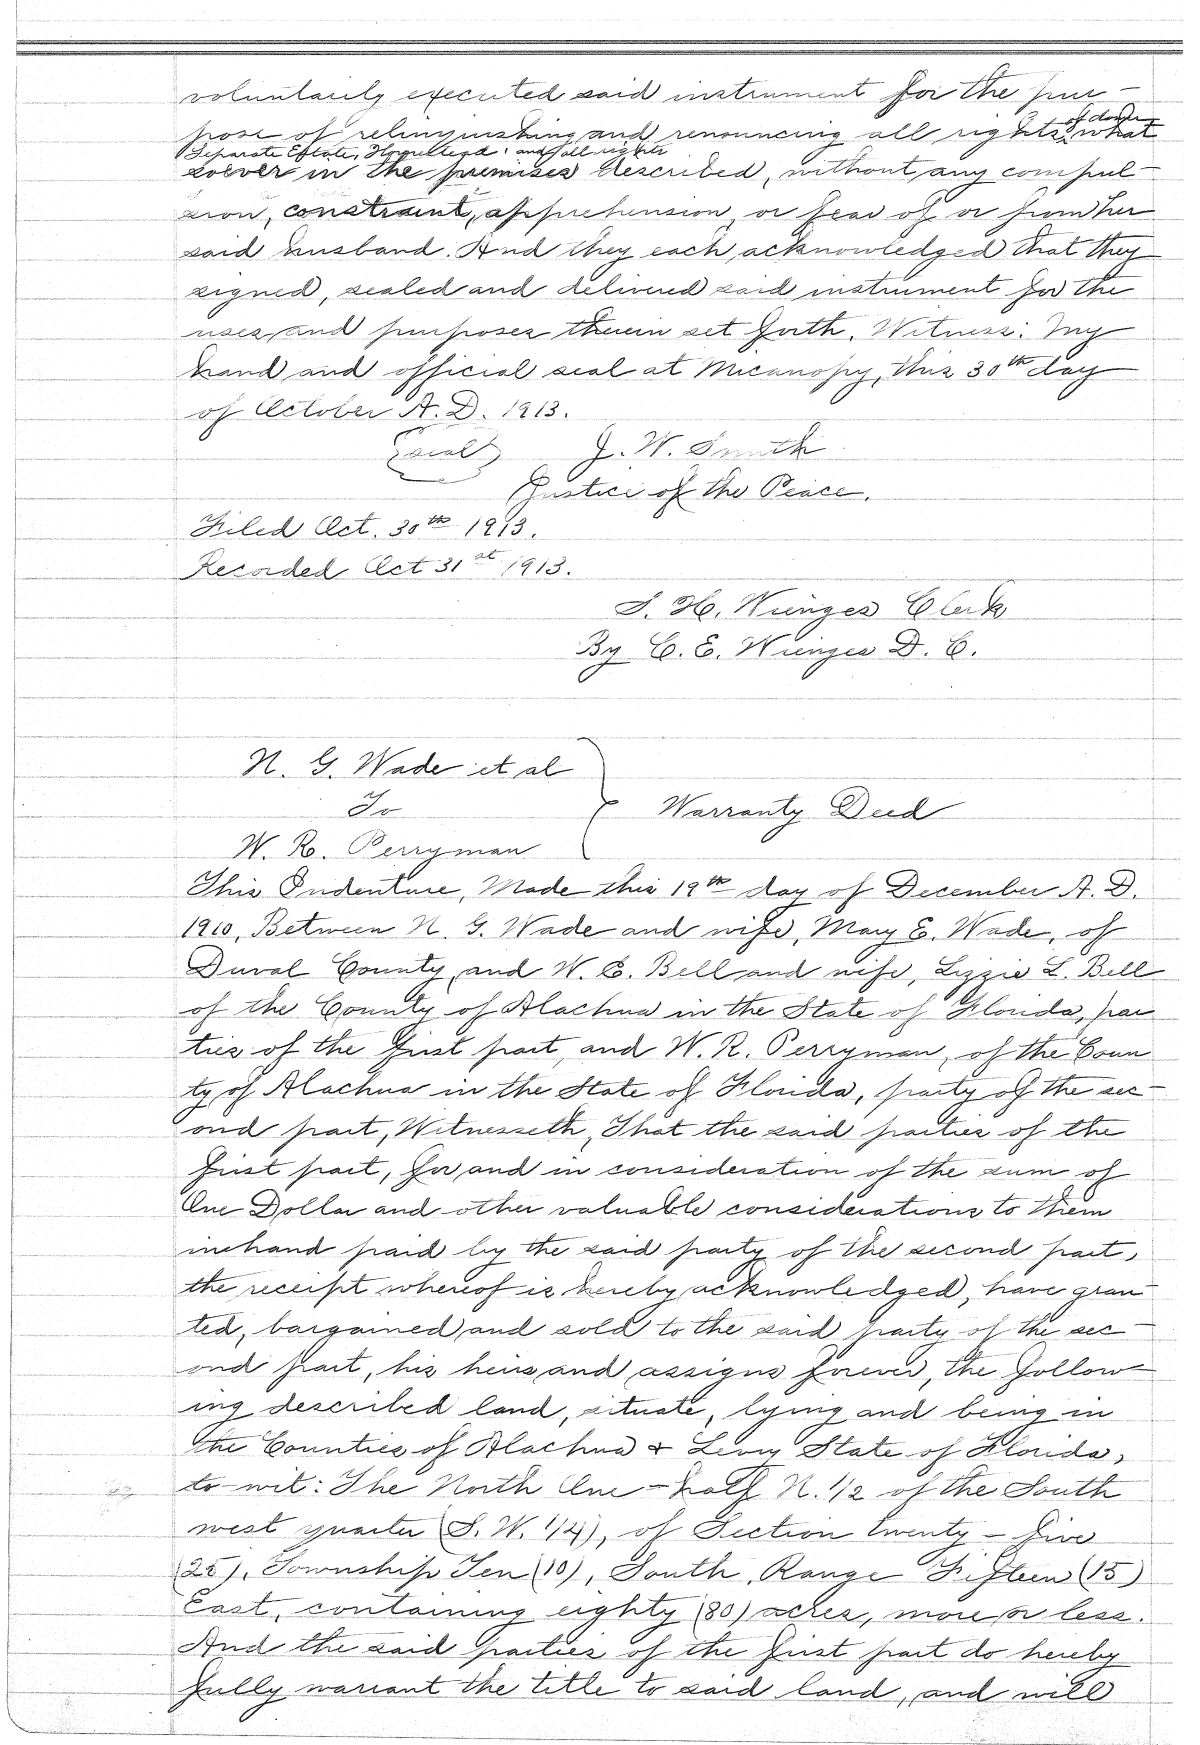 voluntarily executed said instrument for the pur-
pose of relinquishing and renouncing all rights of dower what
Separate Estate, Homestead, and all rights
soever in the premises described, without any compul-
sion, constraint, apprehension, or fear of or from her
said husband. And they each acknowledged that they
signed, sealed and delivered said instrument for the
uses and purposes therein set forth. Witness: My
hand and official seal at Micanopy, this 30th day
of October A. D. 1913.
(seal) J. W. Smith
Justice of the Peace.
Filed Oct. 30th 1913.
Recorded Oct 31st 1913.
S. H. Wienges Clerk
By C. E. Wienges D. C.
N. G. Wade et al
To
Warranty Deed
W. R. Perryman
This Indenture, Made this 19th day of December A. D.
1910, Between N. G. Wade and wife, Mary E. Wade, of
Duval County, and W. E. Bell and wife, Lizzie L. Bell
of the County of Alachua in the State of Florida, par
ties of the first part, and W. R. Perryman, of the Coun
ty of Alachua in the State of Florida, party of the sec-
ond part, Witnesseth, That the said parties of the
first part, for and in consideration of the sum of
One Dollar and other valuable considerations to them
in hand paid by the said party of the second part,
the receipt whereof is hereby acknowledged, have gran-
ted, bargained, and sold to the said party of the sec-
ond part, his heirs and assigns forever, the follow-
ing described land, situate, lying and being in
the Counties of Alachua & Levy State of Florida,
to wit: The North One-half N. 1/2 of the South
west quarter (S. W. 1/4), of Section twenty-five
(25), Township Ten (10), South, Range Fifteen (15)
East, containing eighty (80) acres, more or less.
And the said parties of the first part do hereby
fully warrant the title to said land, and will